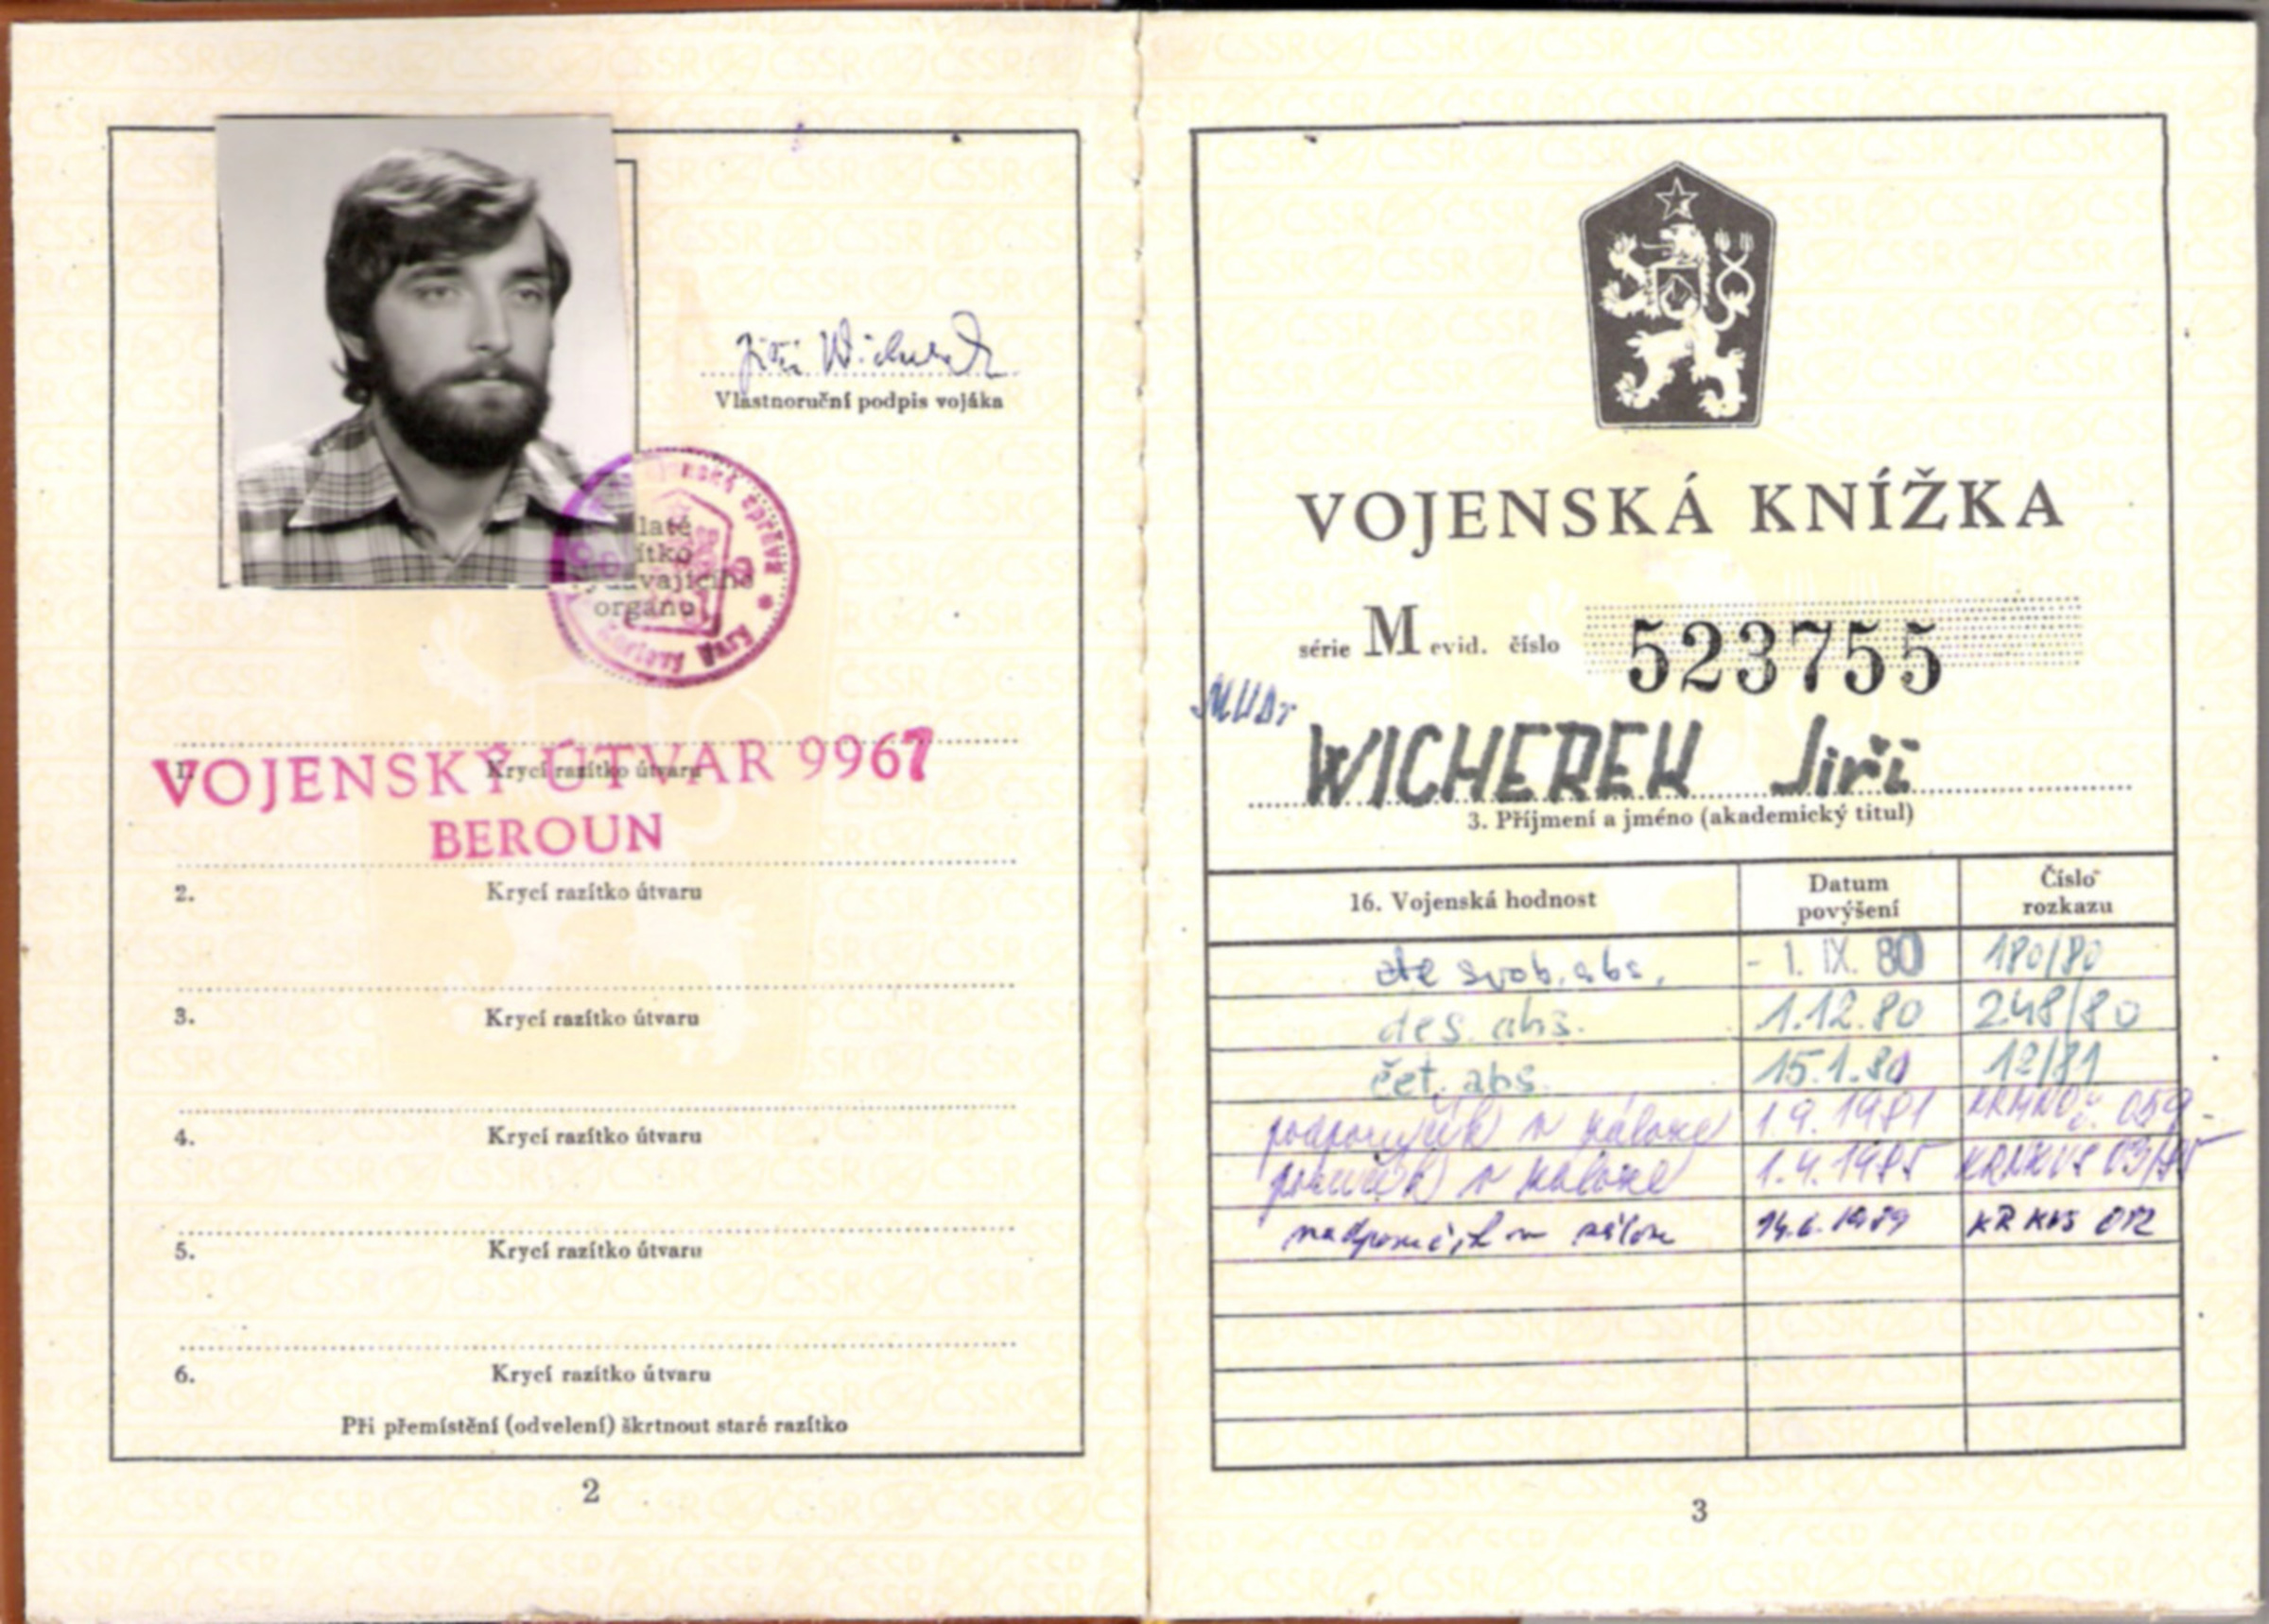 Jiří Wicherek
Vlastnoruční podpis vojáka
organu
VOJENSKÝ ÚTVAR 9967
1. Krycí razítko útvaru
BEROUN
2. Krycí razítko útvaru
3. Krycí razítko útvaru
4. Krycí razítko útvaru
5. Krycí razítko útvaru
6. Krycí razítko útvaru
Při přemístění (odvelení) škrtnout staré razítko
2
VOJENSKÁ KNÍŽKA
série M evid. číslo 523755
MUDr
WICHEREK Jiří
3. Příjmení a jméno (akademický titul)
16. Vojenská hodnost Datum povýšení Číslo rozkazu
svob. abs. - 1. IX. 80 180/80
des. abs. 1.12.80 248/80
čet. abs. 15.1.81 12/81
podporučík v záloze 1.9.1981 059
poručík v záloze 1.4.1985
nadporučík v záloze 14.6.1989
3